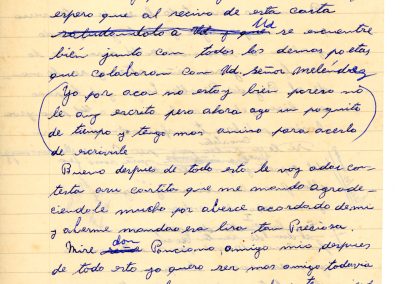 espero que al recivo de esta carta
saludandolo a Ud y que Ud se encuentre
bién junto con todos los demas poetas
que colaboran con Ud. señor Meléndez
(Yo por aca no estoy bien poreso no
le ay escrito pero ahora ago un poquito
de tiempo y tengo mas animo para acerlo
de escrivirle)
Bueno despues de todo esto le voy adar con-
testa asu cartita que me mando agrade-
ciendole mucho por aberce acordado demi
y aberme mandao esa lira tan Preciosa.
Mire don Ponciano, amigo mio, despues
de todo esto yo quero ser mas amigo todavia